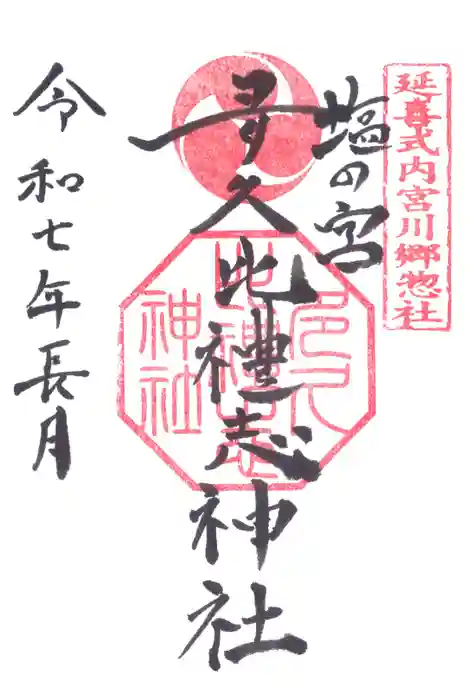 延喜式内宮川郷惣社
塩の宮
多久比禮志神社
令和七年長月
多久
比禮志
神社